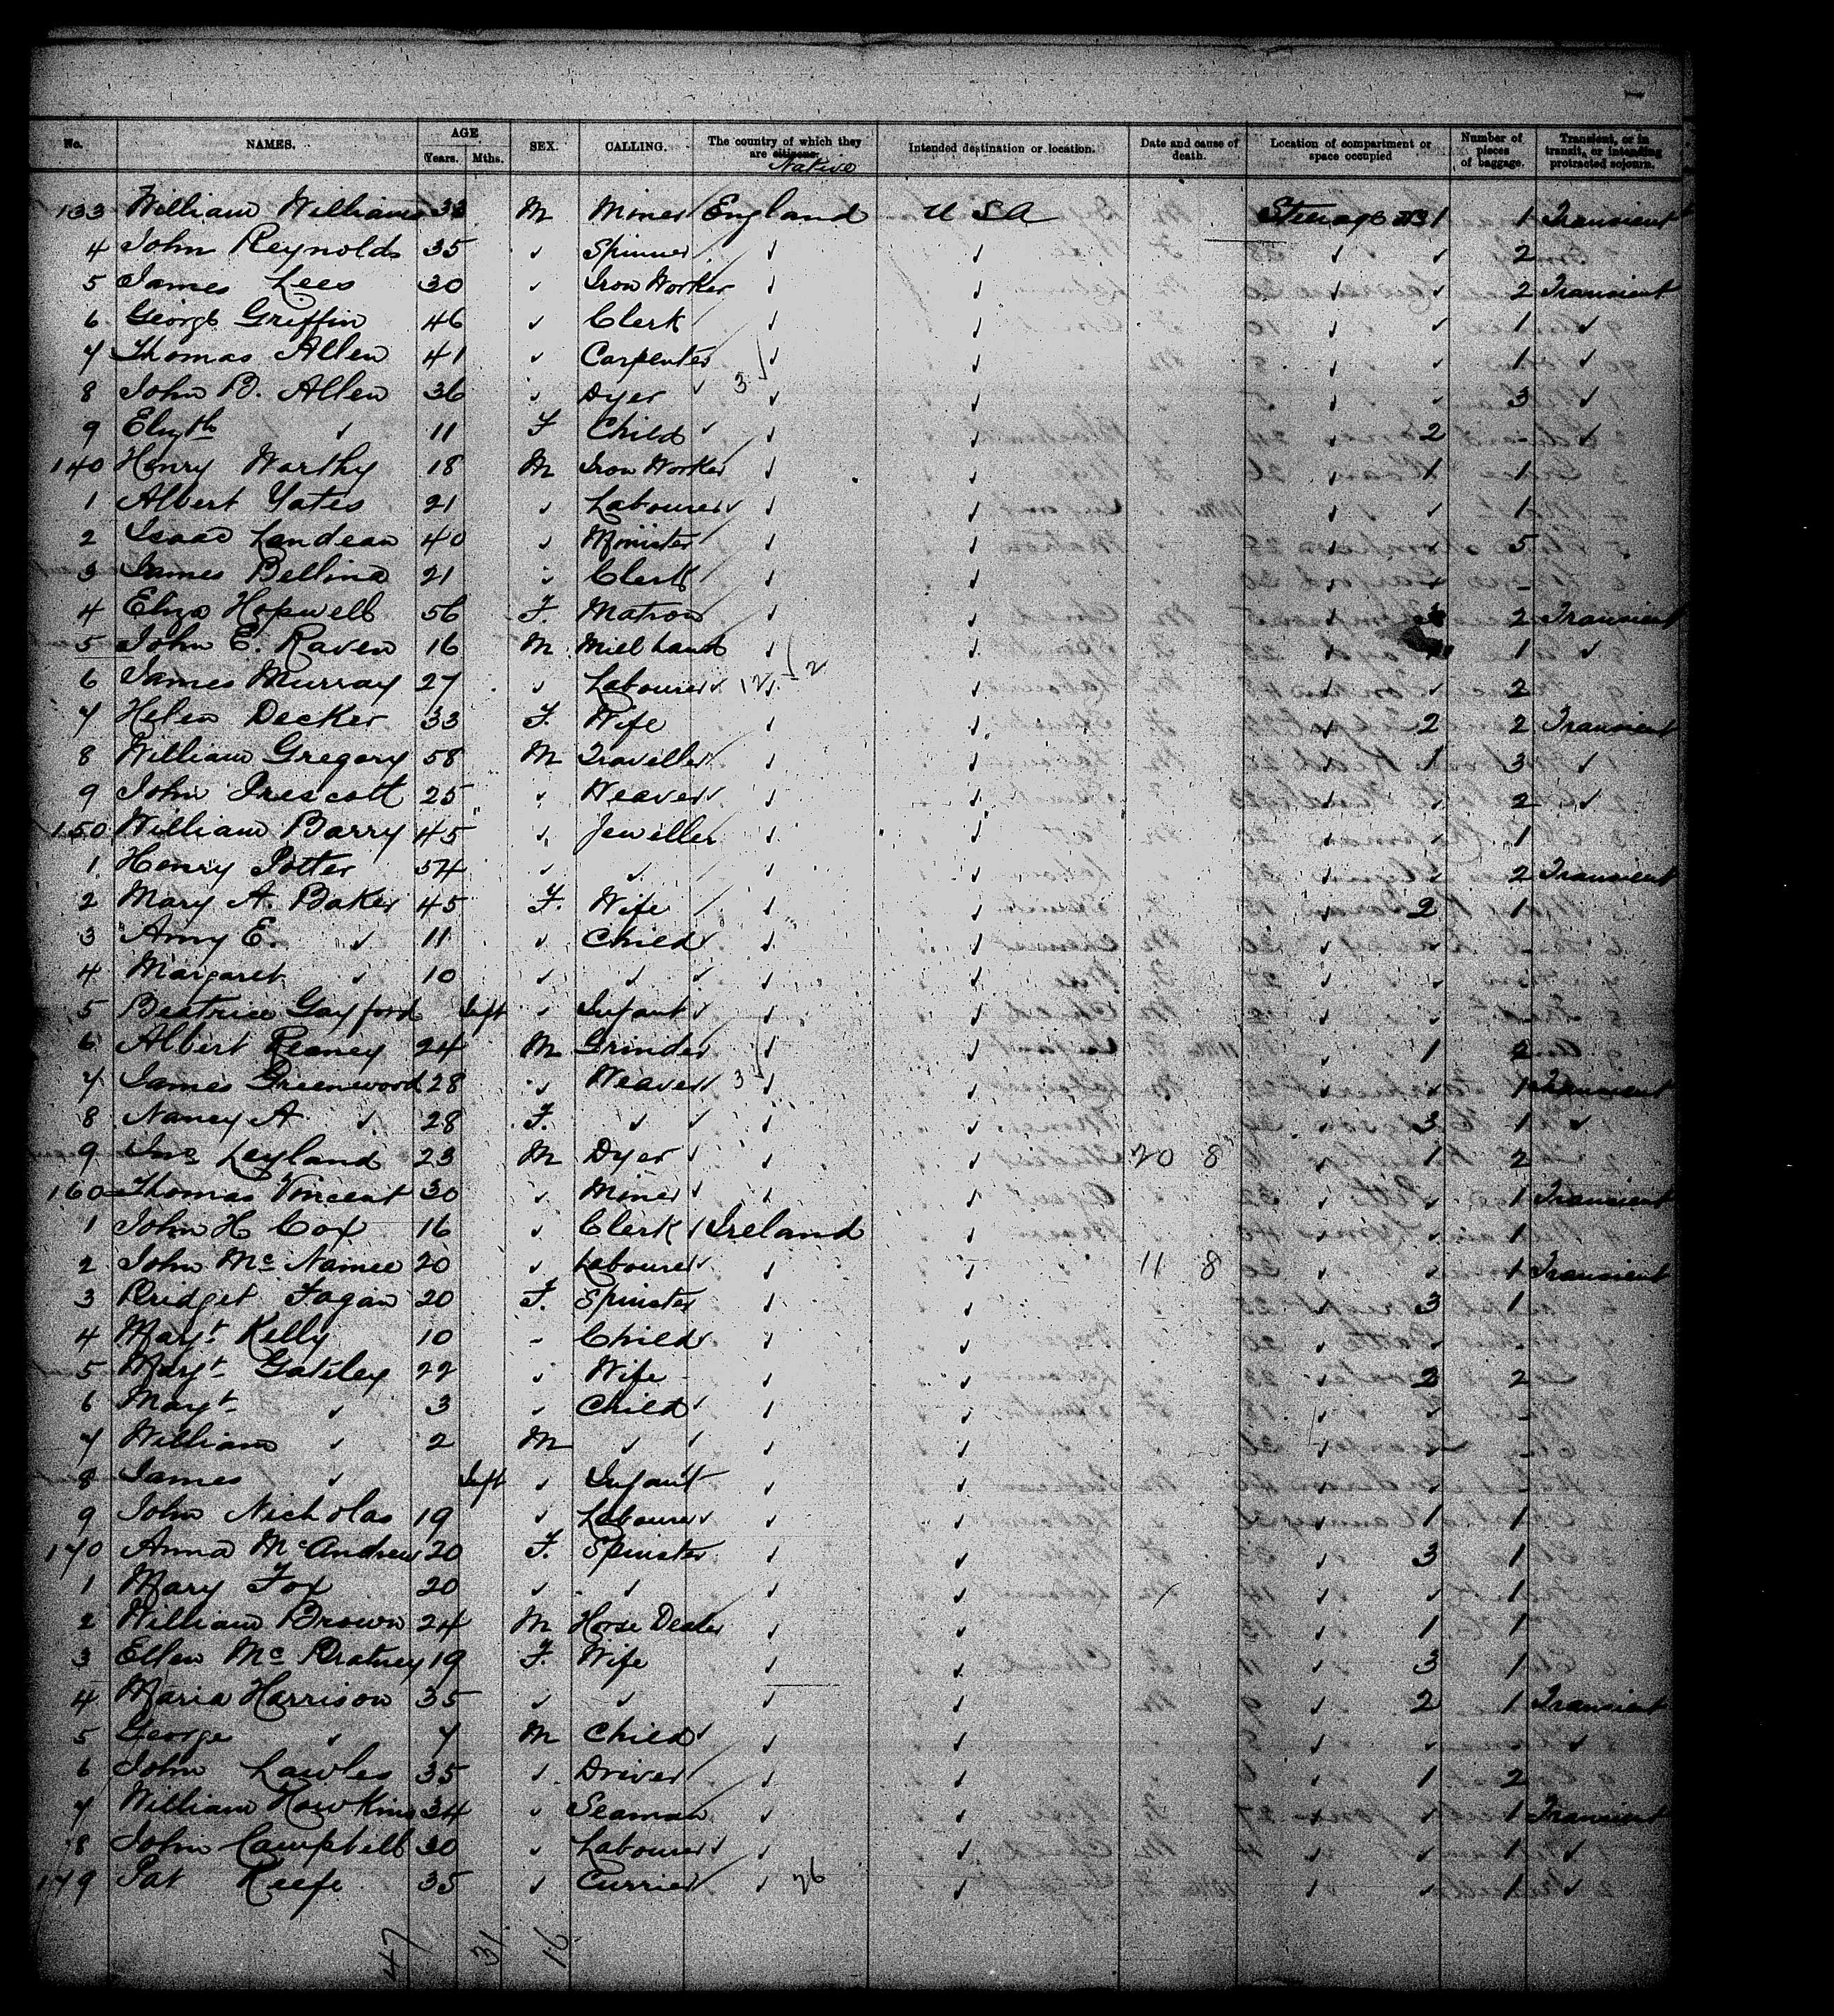 No. NAMES. AGE Years. Mths. SEX. CALLING. The country of which they are citizens. Native Intended destination or location. Date and cause of death. Location of compartment or space occupied Number of pieces of baggage. Transient, or in transit, or intending protracted sojourn.
133 William Williams 33 M Miner England USA Steerage 1 1 Transient
4 John Reynolds 35 ✓ Spinner ✓ ✓ ✓ ✓ 2
5 James Lees 30 ✓ Iron Worker ✓ ✓ ✓ ✓ 2 Transient
6 George Griffin 46 ✓ Clerk ✓ ✓ ✓ ✓ 1 ✓
7 Thomas Allen 41 ✓ Carpenter ✓ ✓ ✓ ✓ 1 ✓
8 John B. Allen 36 ✓ Dyer 3 ✓ ✓ ✓ ✓ 3 ✓
9 Elizth ✓ 11 F Child ✓ ✓ ✓ 2 - ✓
140 Henry Worthy 18 M Iron Worker ✓ ✓ ✓ 1 1
1 Albert Yates 21 ✓ Labourer ✓ ✓ ✓ ✓ 1
2 Isaac Landean 40 ✓ Minister ✓ ✓ ✓ ✓ 5
3 James Bellina 21 ✓ Clerk ✓ ✓ ✓ ✓ -
4 Eliza Hopwell 56 F. Matron ✓ ✓ ✓ 2 Transient
5 John E. Raven 16 M Mill hand ✓ ✓ ✓ 1 ✓
6 James Murray 27 ✓ Labourer 12 ✓ 2 ✓ ✓ ✓ 2
7 Helen Decker 33 F. Wife ✓ ✓ ✓ 2 2 Transient
8 William Gregory 58 M Traveller ✓ ✓ ✓ 1 3 ✓
9 John Prescott 25 ✓ Weaver ✓ ✓ ✓ ✓ 2 ✓
150 William Barry 45 ✓ Jeweller ✓ ✓ ✓ ✓ 1
1 Henry Potter 54 ✓ ✓ ✓ ✓ ✓ ✓ 2 Transient
2 Mary A. Baker 45 F. Wife ✓ ✓ ✓ 2 1
3 Amy E. ✓ 11 ✓ Child ✓ ✓ ✓ ✓ -
4 Margaret ✓ 10 ✓ ✓ ✓ ✓ ✓ ✓ -
5 Beatrice Gayford Inft ✓ Infant ✓ ✓ ✓ ✓ -
6 Albert Reaney 24 M Grinder ✓ ✓ ✓ 1 2
7 James Greenwood 28 ✓ Weaver 3 ✓ ✓ ✓ ✓ 1 Transient
8 Nancy A ✓ 28 F. ✓ ✓ ✓ ✓ 3 1 ✓
9 Jno Leyland 23 M Dyer ✓ ✓ 20 8 ✓ 1 2
160 Thomas Vincent 30 ✓ Miner ✓ ✓ ✓ ✓ 1 Transient
1 John H Cox 16 ✓ Clerk Ireland ✓ ✓ ✓ 1
2 John Mc Namee 20 ✓ Labourer ✓ ✓ 11 8 ✓ ✓ 1 Transient
3 Bridget Fagan 20 F. Spinster ✓ ✓ ✓ 3 1
4 Magt. Kelly 10 - Child ✓ ✓ ✓ ✓ -
5 Magt. Gateley 22 ✓ Wife ✓ ✓ ✓ 2 2
6 Magt. ✓ 3 ✓ Child ✓ ✓ ✓ ✓ -
7 William ✓ 2 M ✓ ✓ ✓ ✓ ✓ -
8 James ✓ Inft ✓ Infant ✓ ✓ ✓ ✓
9 John Nicholas 19 ✓ Labourer ✓ ✓ ✓ 1 1
170 Anna McAndrew 20 F. Spinster ✓ ✓ ✓ 3 1
1 Mary Fox 20 ✓ ✓ ✓ ✓ ✓ ✓ 1
2 William Brown 24 M Horse Dealer ✓ ✓ ✓ 1 1
3 Ellen Mc Bratney 19 F. Wife ✓ ✓ ✓ 3 1
4 Maria Harrison 35 ✓ ✓ ✓ ✓ ✓ 2 1 Transient
5 George ✓ 7 M Child ✓ ✓ ✓ ✓ - ✓
6 John Lawles 35 ✓ Driver ✓ ✓ ✓ 1 2
7 William Hawkins 34 ✓ Seaman ✓ ✓ ✓ ✓ 1 Transient
8 John Campbell 30 ✓ Labourer ✓ ✓ ✓ ✓ 1 ✓
179 Pat Keefe 35 ✓ Currier ✓ 26 ✓ ✓ ✓ 1 ✓
47 31 16